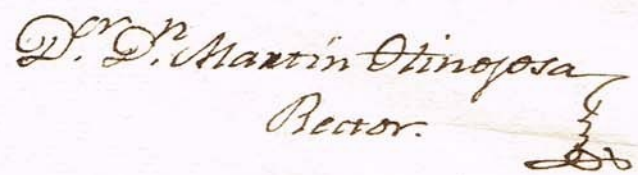 D.ᵒʳ D.ⁿ Martín Hinojosa
Rector.